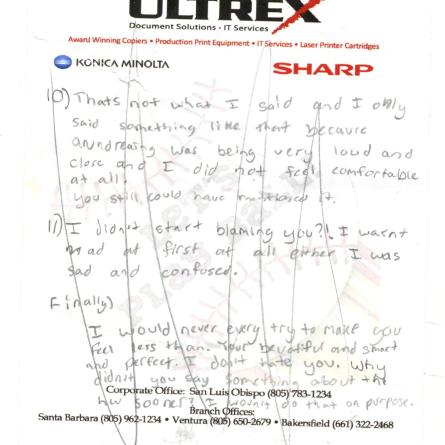 ULTREX
Document Solutions · IT Services
Award Winning Copiers • Production Print Equipment • IT Services • Laser Printer Cartridges
KONICA MINOLTA
SHARP
10) Thats not what I said and I only
said something like that because
was being very loud and
close and I did not feel comfortable
at all.
you still could have it.
11) I didn't start blaming you?! I wasnt
mad at first at all either I was
sad and confused.
Finally)
I would never every try to make you
feel less than. Your beautiful and smart
and perfect. I don't hate you. Why
didn't you say something about the
Corporate Office: San Luis Obispo (805) 783-1234
sooner? I wouldn't do that on purpose.
Branch Offices:
Santa Barbara (805) 962-1234 • Ventura (805) 650-2679 • Bakersfield (661) 322-2468